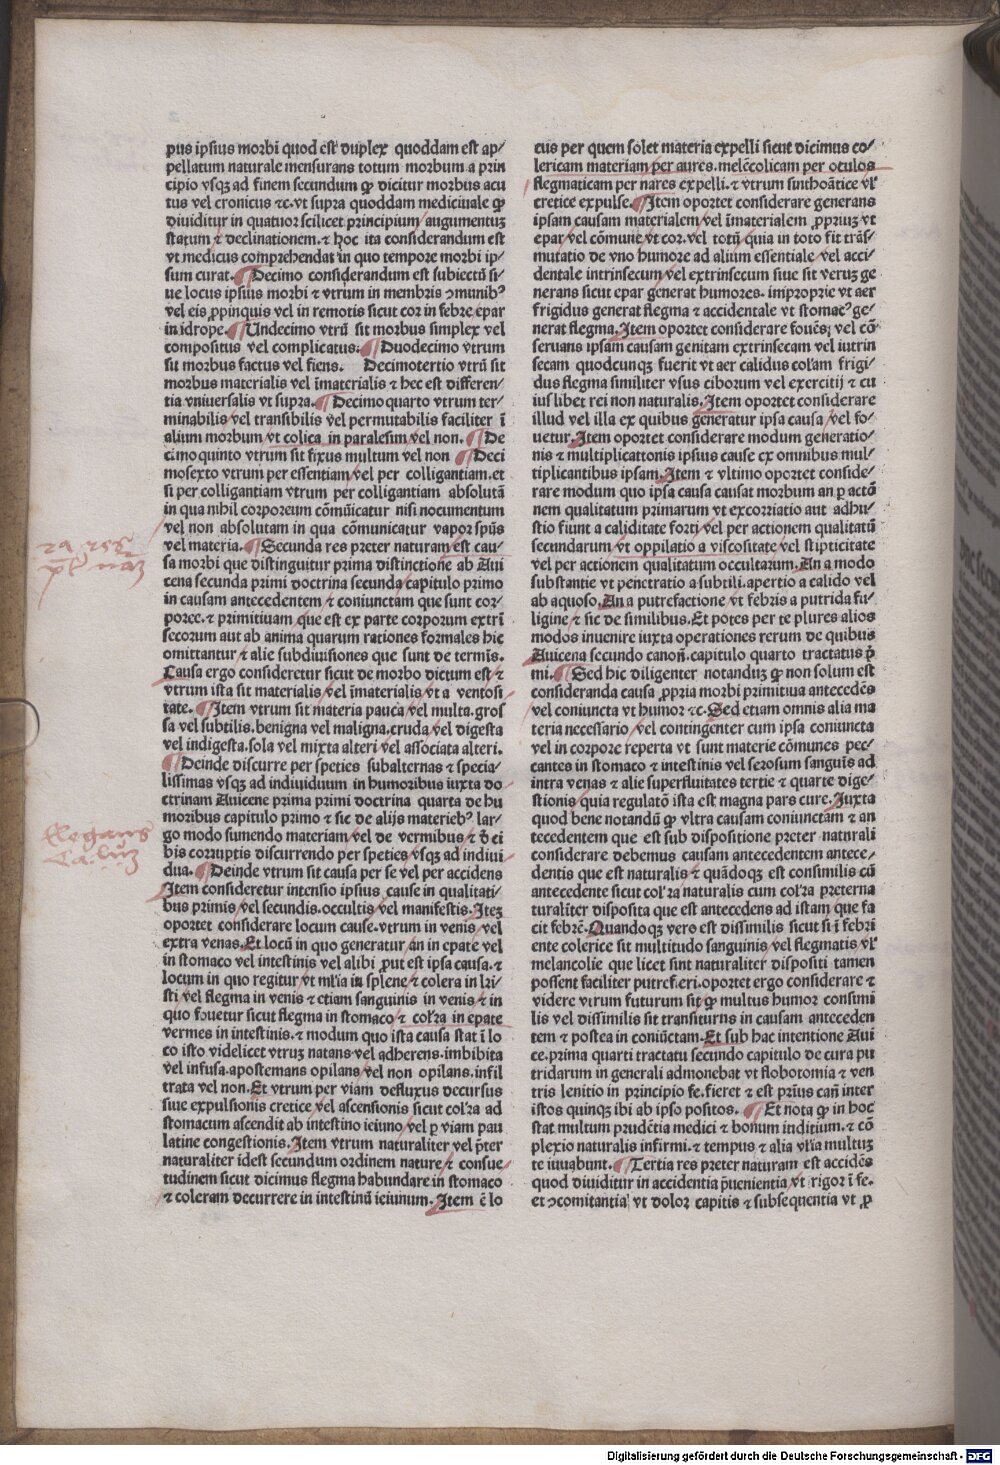 pus ipsius morbi quod est duplex quoddam est ap⸗
pellatum naturale mensurans totum morbum a prin
cipio vsqȝ ad finem secundum ꝙ dicitur morbus acu
tus vel cronicus ⁊c. vt supra quoddam medicinale ꝙ
diuiditur in quatuor scilicet principium augumentuȝ
statum ⁊ declinationem. ⁊ hoc ita considerandum est
vt medicus comprehendat in quo tempore morbi ip⸗
sum curat. ¶ Decimo considerandum est subiectū si⸗
ue locus ipsius morbi ⁊ vtrum in membris ꝯmunibꝰ
vel eis ꝓpinquis vel in remotis sicut cor in febre epar
in idrope. ¶ Undecimo vtrū sit morbus simplex vel
compositus vel complicatus. ¶ Duodecimo vtrum
sit morbus factus vel fiens. Decimotertio vtrū sit
morbus materialis vel īmaterialis ⁊ hec est differen⸗
tia vniuersalis vt supra. ¶ Decimo quarto vtrum ter⸗
minabilis vel transibilis vel permutabilis faciliter ī
alium morbum vt colica in paralesim vel non. ¶ De
cimo quinto vtrum sit fixus multum vel non ¶ Deci
mosexto vtrum per essentiam vel per colligantiam. et
si per colligantiam vtrum per colligantiam absolutā
in qua nihil corporeum cōmūicatur nisi nocumentum
vel non absolutam in qua cōmunicatur vapor spūs
vel materia. ¶ Secunda res preter naturam est cau⸗
sa morbi que distinguitur prima distinctione ab Aui
cena secunda primi doctrina secunda capitulo primo
in causam antecedentem ⁊ coniunctam que sunt cor⸗
poree. ⁊ primitiuam que est ex parte corporum extrī
secorum aut ab anima quarum rationes formales hic
omittantur ⁊ alie subdiuisiones que sunt de termīs.
Causa ergo consideretur sicut de morbo dictum est ⁊
vtrum ista sit materialis vel īmaterialis vt a ventosi
tate. ¶ Item vtrum sit materia pauca vel multa. gros
sa vel subtilis. benigna vel maligna. cruda vel digesta
vel indigesta. sola vel mixta alteri vel associata alteri.
¶ Deinde discurre per species subalternas ⁊ specia⸗
lissimas vsqȝ ad indiuiduum in humoribus iuxta do
ctrinam Auicene prima primi doctrina quarta de hu
moribus capitulo primo ⁊ sic de alijs materiebꝰ lar⸗
go modo sumendo materiam vel de vermibus ⁊ ꝺ̄ ci
bis corruptis discurrendo per species vsqȝ ad indiui
dua. ¶ Deinde vtrum sit causa per se vel per accidens
Item consideretur intensio ipsius cause in qualitati⸗
bus primis vel secundis. occultis vel manifestis. Iteȝ
oportet considerare locum cause. vtrum in venis vel
extra venas. Et locū in quo generatur an in epate vel
in stomaco vel intestinis vel alibi ꝓut est ipsa causa. ⁊
locum in quo regitur vt mlīa in splene ⁊ colera in kri⸗
sti vel flegma in venis ⁊ etiam sanguinis in venis ⁊ in
quo fouetur sicut flegma in stomaco ⁊ colꝛa in epate
vermes in intestinis. ⁊ modum quo ista causa stat ī lo
co isto videlicet vtruȝ natans vel adherens. imbibita
vel infusa. apostemans opilans vel non opilans. infil
trata vel non. Et vtrum per viam defluxus decursus
siue expulsionis cretice vel ascensionis sicut colꝛa ad
stomacum ascendit ab intestino ieiuno vel ꝑ viam pau
latine congestionis. Item vtrum naturaliter vel p̄ter
naturaliter idest secundum ordinem nature ⁊ consue
tudinem sicut dicimus flegma habundare in stomaco
⁊ coleram decurrere in intestinū ieiunum. Item ē lo
cus per quem solet materia expelli sicut dicimus co⸗
lericam materiam per aures. melēcolicam per oculos
flegmaticam per nares expelli. ⁊ vtrum sinthoātice vl̄
cretice expulse. ¶ Item oportet considerare generans
ipsam causam materialem vel īmaterialem ꝓprius vt
epar vel cōmune vt cor. vel totū quia in toto fit trās⸗
mutatio de vno humore ad alium essentiale vel acci⸗
dentale intrinsecum vel extrinsecum siue sit veruȝ ge
nerans sicut epar generat humores. improprie vt aer
frigidus generat flegma ⁊ accidentale vt stomacꝰ ge⸗
nerat flegma. Item oportet considerare fouēs vel cō
seruans ipsam causam genitam extrinsecam vel intrin
secam quodcunqȝ fuerit vt aer calidus colam frigi⸗
dus flegma similiter vsus ciborum vel exercitij ⁊ cu
iuslibet rei non naturalis. Item oportet considerare
illud vel illa ex quibus generatur ipsa causa vel fo⸗
uetur. Item oportet considerare modum generatio⸗
nis ⁊ multiplicationis ipsius cause ex omnibus mul⸗
tiplicantibus ipsam. Item ⁊ vltimo oportet conside⸗
rare modum quo ipsa causa causat morbum an ꝑ actō
nem qualitatum primarum vt excorriatio aut adhu⸗
stio fiunt a caliditate forti vel per actionem qualitatū
secundarum vt oppilatio a viscositate vel stipticitate
vel per actionem qualitatum occultarum. An a modo
substantie vt penetratio a subtili. apertio a calido vel
ab aquoso. An a putrefactione vt febris a putrida fu⸗
ligine ⁊ sic de similibus. Et potes per te plures alios
modos inuenire iuxta operationes rerum de quibus
Auicena secundo canoñ. capitulo quarto tractatus p̄
mi. ¶ Sed hic diligenter notanduȝ ꝙ non solum est
consideranda causa ꝓpria morbi primitiua antecedēs
vel coniuncta vt humor ⁊c. Sed etiam omnis alia ma
teria necessario vel contingenter cum ipsa coniuncta
vel in corpore reperta vt sunt materie cōmunes pec⸗
cantes in stomaco ⁊ intestinis vel serosum sanguīs ad
intra venas ⁊ alie superfluitates tertie ⁊ quarte dige⸗
stionis quia regulatō ista est magna pars cure. Iuxta
quod bene notandū ꝙ vltra causam coniunctam ⁊ an
tecedentem que est sub dispositione preter naturali
considerare debemus causam antecedentem antece⸗
dentis que est naturalis ⁊ quādoqȝ est consimilis cū
antecedente sicut colꝛa naturalis cum colꝛa preterna
turaliter disposita que est antecedens ad istam que fa
cit febrē. Quandoqȝ vero est dissimilis sicut si ī febrī
ente colerice sit multitudo sanguinis vel flegmatis vl̄
melancolie que licet sint naturaliter dispositi tamen
possent faciliter putrefieri. oportet ergo considerare ⁊
videre vtrum futurum sit ꝙ multus humor consimi
lis vel dissimilis sit transiturus in causam anteceden
tem ⁊ postea in coniūctam. Et sub hac intentione Aui
ce. prima quarti tractatu secundo capitulo de cura pu
tridarum in generali admonebat vt flobotomia ⁊ ven
tris lenitio in principio fe. fieret ⁊ est prius can inter
istos quinqȝ ibi ab ipso positos. ¶ Et nota ꝙ in hoc
stat multum prudētia medici ⁊ bonum inditium. ⁊ cō
plexio naturalis infirmi. ⁊ tempus ⁊ alia vlīa multuȝ
te iuuabunt. ¶ Tertia res preter naturam est accidēs
quod diuiditur in accidentia p̄uenientia vt rigor ī fe.
et ꝯcomitantia vt dolor capitis ⁊ subsequentia vt ꝓ
Elegans
Digitalisierung gefördert durch die Deutsche Forschungsgemeinschaft - DFG